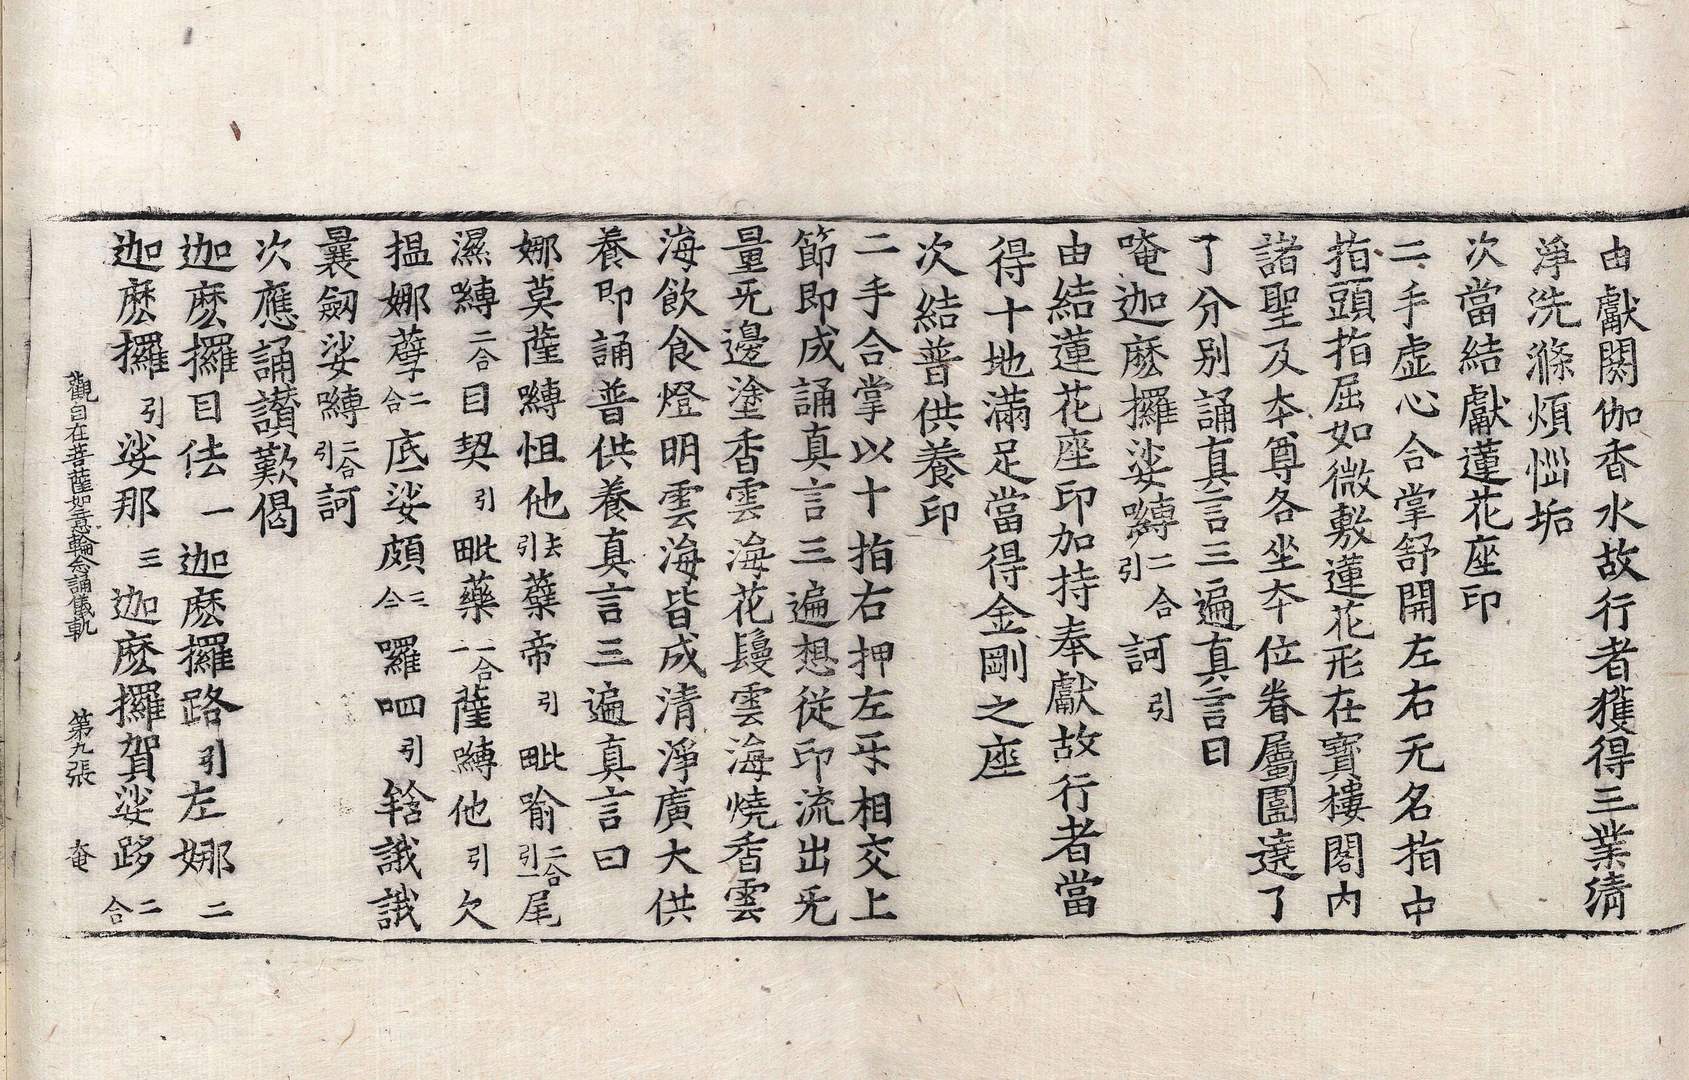 由獻閼伽香水故行者獲得三業清
淨洗滌煩惱垢
次當結獻蓮花座印
二手虛心合掌舒開左右无名指中
指頭指屈如微敷蓮花形在寶樓閣內
諸聖及本尊各坐本位眷屬圍遶了
了分别誦真言三遍真言曰
唵迦麽攞娑嚩二合引訶引
由結蓮花座印加持奉獻故行者當
得十地滿足當得金剛之座
次結普供養印
二手合掌以十指右押左互相交上
節即成誦真言三遍想從印流出无
量无邊塗香雲海花鬘雲海燒香雲
海飲食燈明雲海皆成清淨廣大供
養即誦普供養真言三遍真言曰
娜莫薩嚩怛他去引蘖帝引毗喻二合引一尾
濕嚩二合目契引毗藥二合二薩嚩他引欠
搵娜孽二合底娑頗二合囉呬引䤴誐誐
曩劒娑嚩二合引訶
次應誦讃歎偈
迦麽攞目佉一迦麽攞路引左娜二
迦麽攞引娑那三迦麽攞賀娑跢二合
觀自在菩薩如意輪念誦儀軌 第九張 奄